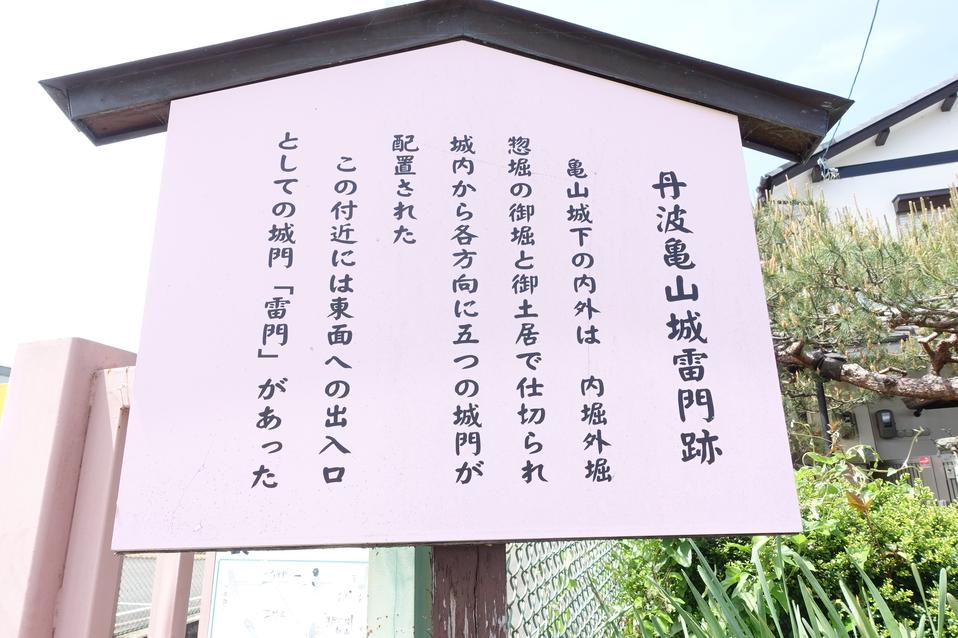 丹波亀山城雷門跡
亀山城下の内外は　内堀外堀
惣堀の御堀と御土居で仕切られ
城内から各方向に五つの城門が
配置された
この付近には東面への出入口
としての城門「雷門」があった